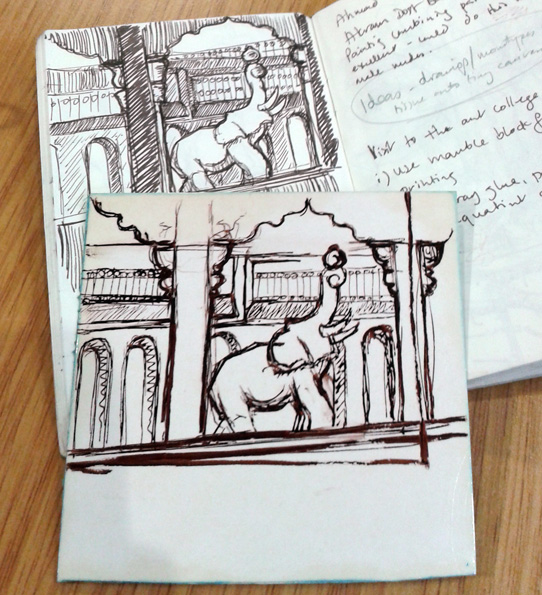 Ahmed
Akram Dost B
Painting combining pri
excellent - could do this
Ideas - drawing/monotypes
tissue onto tiny canvas
Visit to the art college
i) use marble block f
printing
ay glue,
quatint